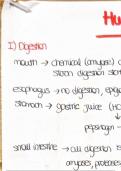 Hu
I) Digestion
mouth → chemical (amylase) d
starch digestion start
esophagus → no digestion, epig
stomach → gastric juice (HC
↓
pepsinogen -
small intestine → all digestion is
amylases, proteases